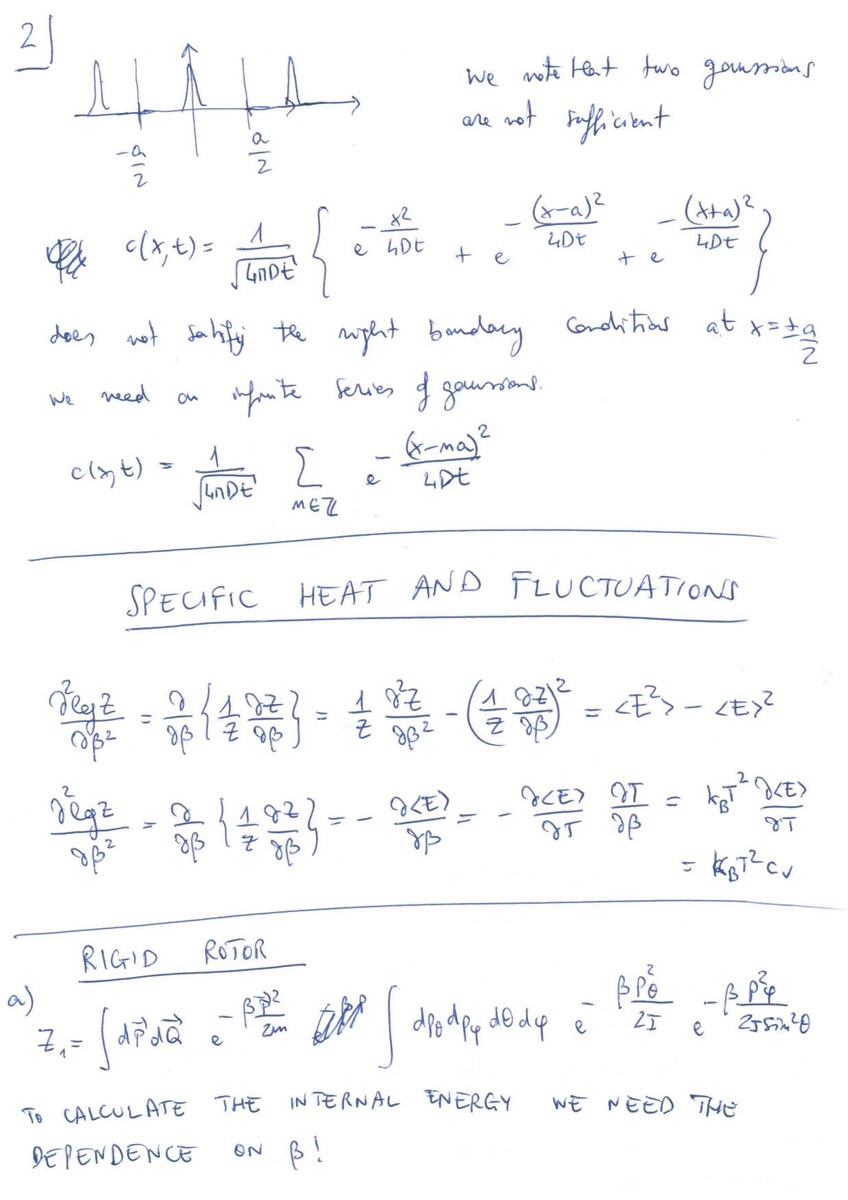 2]
We note that two gaussians
are not sufficient
-a/2 a/2
c(x,t) = 1/√(4πDt) { e^{-x²/4Dt} + e^{-(x-a)²/4Dt} + e^{-(x+a)²/4Dt} }
does not satisfy the right boundary conditions at x=±a/2
we need an infinite series of gaussians.
c(x,t) = 1/√(4πDt) Σ_{m∈ℤ} e^{-(x-ma)²/4Dt}
SPECIFIC HEAT AND FLUCTUATIONS
∂²log Z/∂β² = ∂/∂β {1/Z ∂Z/∂β} = 1/Z ∂²Z/∂β² - (1/Z ∂Z/∂β)² = <E²> - <E>²
∂²log Z/∂β² = ∂/∂β {1/Z ∂Z/∂β} = - ∂<E>/∂β = - ∂<E>/∂T ∂T/∂β = k_BT² ∂<E>/∂T
= k_BT² c_v
RIGID ROTOR
a)
Z₁ = ∫ dP⃗ dQ⃗ e^{-βP⃗²/2m} ∫ dp_θ dp_φ dθ dφ e^{-βp_θ²/2I} e^{-βp_φ²/2I sin²θ}
TO CALCULATE THE INTERNAL ENERGY WE NEED THE
DEPENDENCE ON β!